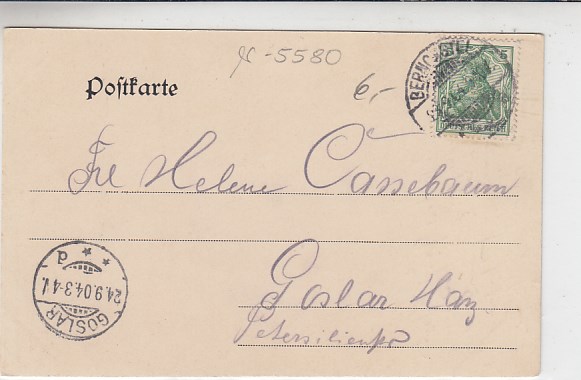 -5580
Postkarte
6,-
BERNCASTEL
5 5
DEUTSCHES REICH
Frl Helene Cassebaum
Goslar Harz
Petersilienstr
GOSLAR
24.9.04.3-4N.
d